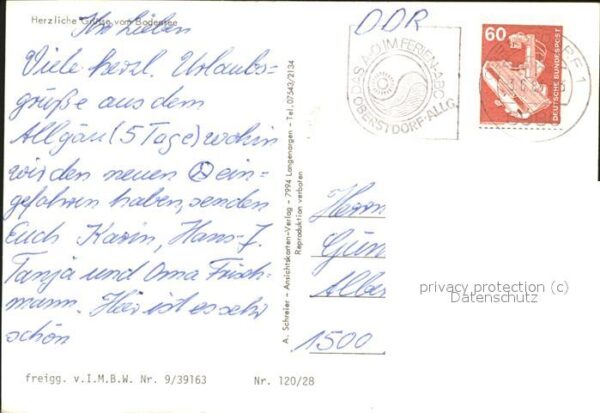 Herzliche Grüße vom Bodensee
Ihr Lieben
Viele herzl. Urlaubs-
grüße aus dem
Allgäu (5 Tage) wohin
wir den neuen ein-
gefahren haben, senden
Euch Karin, Hans-J.
Tanja und Oma Frisch-
mann. Hier ist es sehr
schön
freigg. v.I.M.B.W. Nr. 9/39163
Nr. 120/28
A. Schreier - Ansichtskarten-Verlag - 7994 Langenargen - Tel. 07543/2134
Reproduktion verboten
DDR
DAS A-O UM FERIEN-ABC
OBERSTDORF·ALLG.
60
DEUTSCHE BUNDESPOST
Herrn
Gün
Alber
1500
privacy protection (c)
Datenschutz